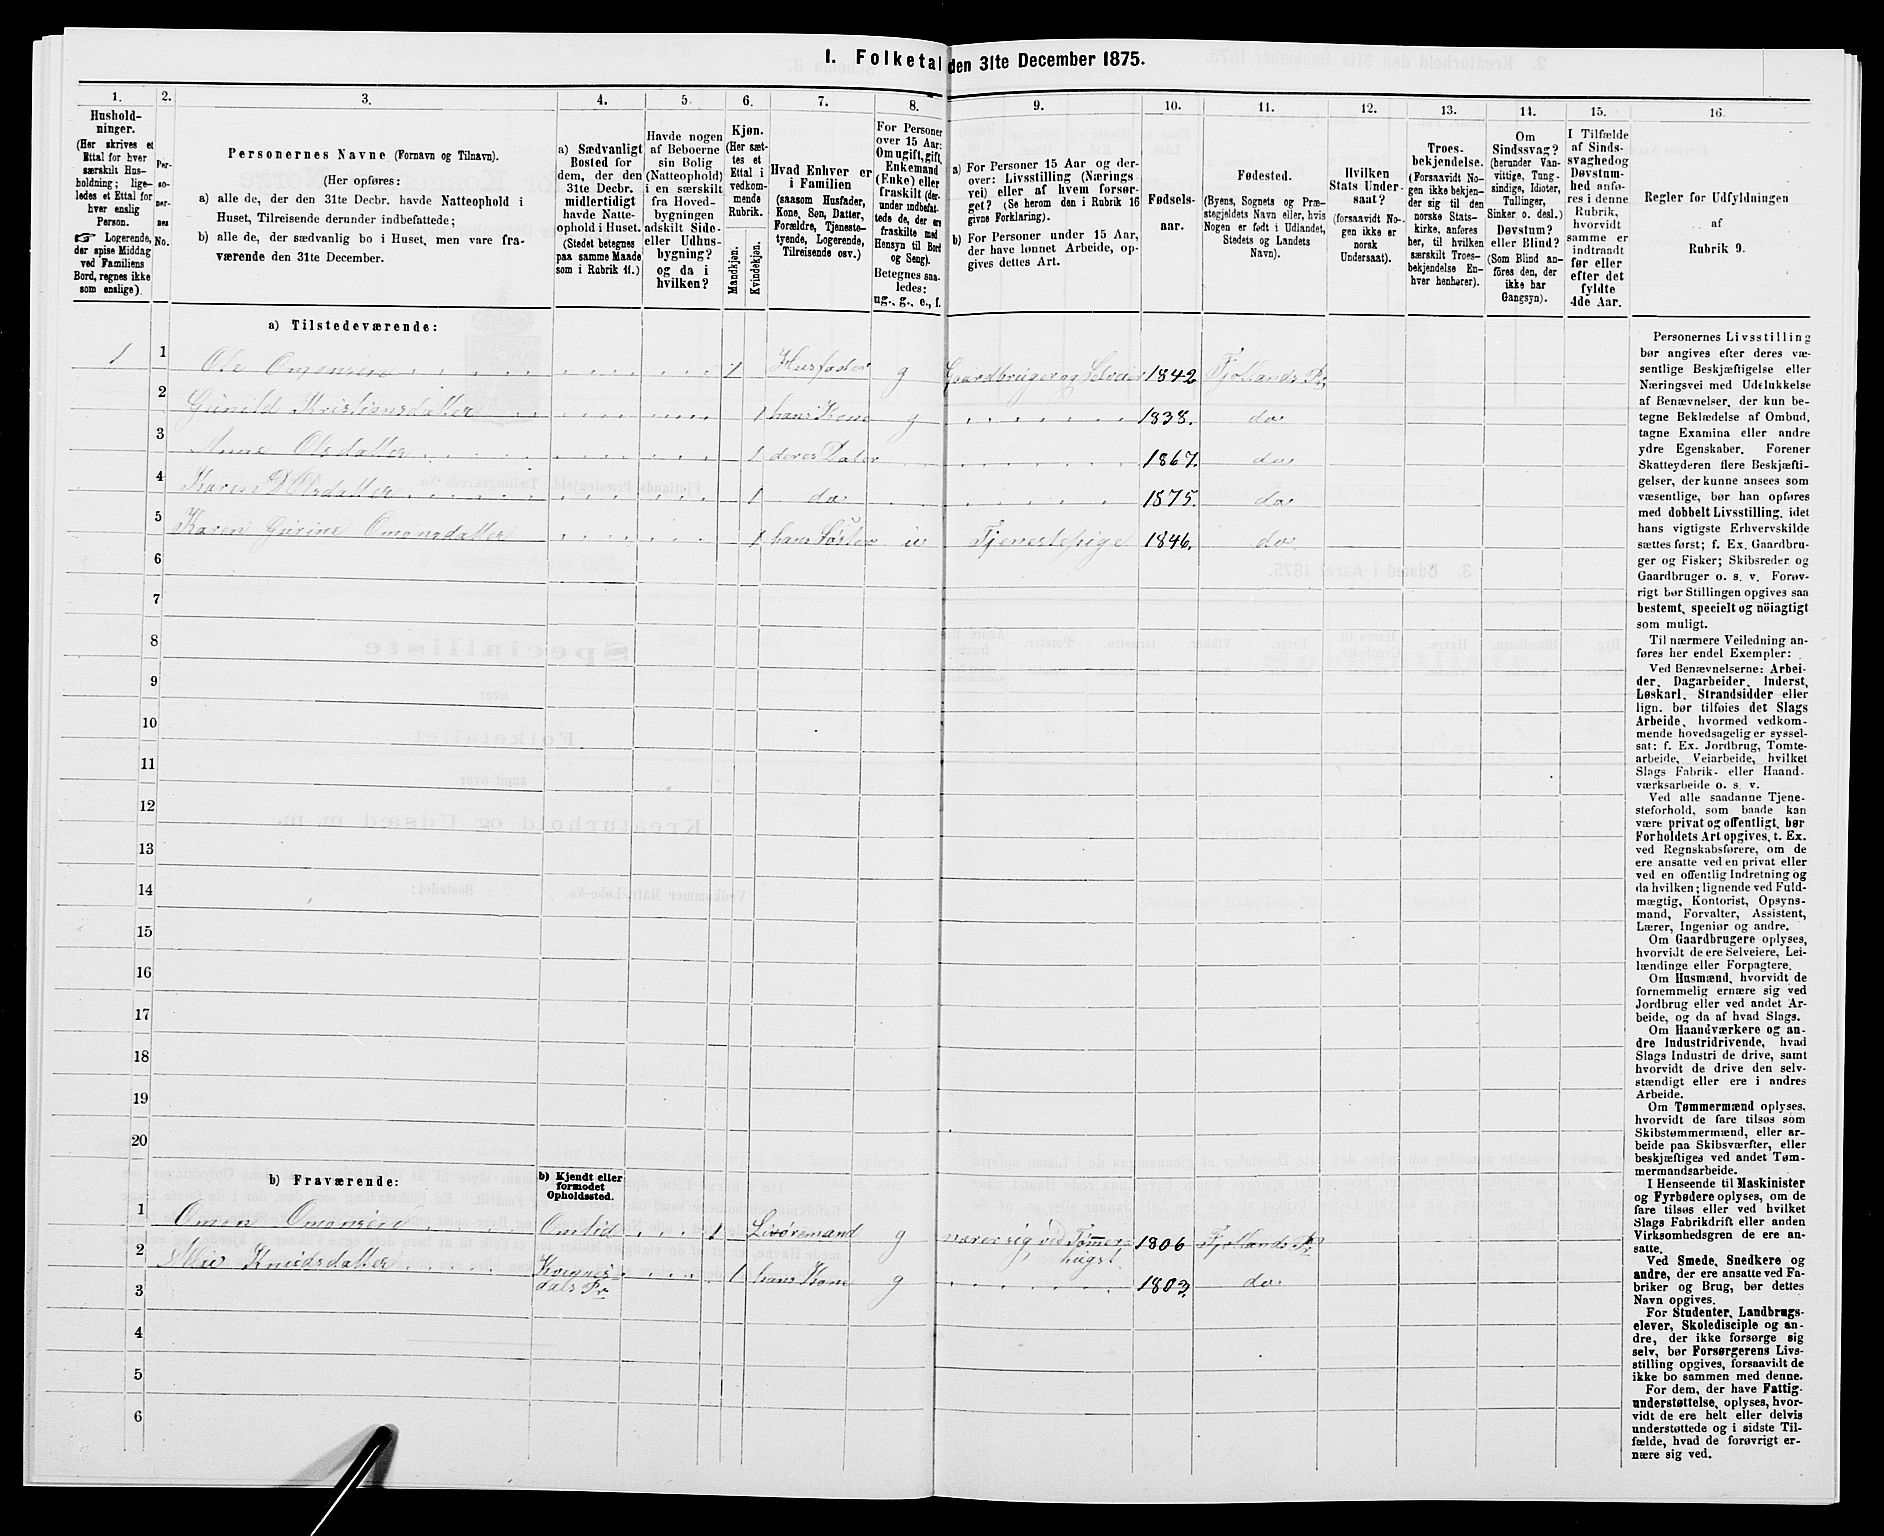 I. Folketal den 31te December 1875.
1.
Hushold-
ninger.
(Her skrives et
Ettal for hver
særskilt Hus-
holdning; lige-
ledes et Ettal for
hver enslig
Person.
☞ Logerende,
der spise Middag
ved Familiens
Bord, regnes ikke
som enslige).
2.
Per-
so-
ner-
nes
No.
3.
Personernes Navne (Fornavn og Tilnavn).
(Her opføres:
a) alle de, der den 31te Decbr. havde Natteophold i
Huset, Tilreisende derunder indbefattede;
b) alle de, der sædvanlig bo i Huset, men vare fra-
værende den 31te December.
4.
a) Sædvanligt
Bosted for
dem, der den
31te Decbr.
midlertidigt
havde Natte-
ophold i Huset.
(Stedet betegnes
paa samme Maade
som i Rubrik 11.)
5.
Havde nogen
af Beboerne
sin Bolig
(Natteophold)
i en særskilt
fra Hoved-
bygningen
adskilt Side-
eller Udhus-
bygning?
og da i
hvilken?
6.
Kjøn.
(Her sæt-
tes et
Ettal i
vedkom-
mende
Rubrik.
Mandkjøn.
Kvindekjøn.
7.
Hvad Enhver er
i Familien
(saasom Husfader,
Kone, Søn, Datter,
Forældre, Tjeneste-
tyende, Logerende,
Tilreisende osv.)
8.
For Personer
over 15 Aar:
Om ugift, gift,
Enkemand
(Enke) eller
fraskilt (der-
under indbefat-
tede de, der ere
fraskilte med
Hensyn til Bord
og Seng).
Betegnes saa-
ledes:
ug., g., e., f.
9.
a) For Personer 15 Aar og der-
over: Livsstilling (Nærings-
vei) eller af hvem forsør-
get? (Se herom den i Rubrik 16
givne Forklaring).
b) For Personer under 15 Aar,
der have lønnet Arbeide, op-
gives dettes Art.
10.
Fødsels-
aar.
11.
Fødested.
(Byens, Sognets og Præ-
stegjeldets Navn eller, hvis
Nogen er født i Udlandet,
Stedets og Landets
Navn).
12.
Hvilken
Stats Under-
saat?
(forsaavidt No-
gen ikke er
norsk
Undersaat).
13.
Troes-
bekjendelse.
(Forsaavidt No-
gen ikke bekjen-
der sig til den
norske Stats-
kirke, anføres
her, til hvilken
særskilt Troes-
bekjendelse En-
hver henhører).
14.
Om
Sindssvag?
(herunder Van-
vittige, Tung-
sindige, Idioter,
Tullinger,
Sinker o. desl.)
Døvstum?
eller Blind?
(Som Blind an-
føres den, der
ikke har
Gangsyn).
15.
I Tilfælde
af Sinds-
svaghed og
Døvstum-
hed anfø-
res i denne
Rubrik,
hvorvidt
samme er
indtraadt
før eller
efter det
fyldte
4de Aar.
16.
Regler for Udfyldningen
af
Rubrik 9.
a) Tilstedeværende:
1 1 Ole Omonsen 1 Husfader g Gaardbruger og Selveier 1842 Fjotlands Pr.
2 Gunild Kristiansdatter 1 hans Kone g 1838. do
3 Anne Olsdatter 1 deres Dater 1867. do
4 Karen Olsdatter 1 do 1875. do
5 Karen Gurine Omonsdatter 1 hans Søster u Tjenestepige 1846. do
6
7
8
9
10
11
12
13
14
15
16
17
18
19
20
b) Fraværende:
b) Kjendt eller
formodet
Opholdssted.
1 Omon Omonsen Omlid 1 Livøremand g nærer sig ved Tømmer- 1806 Fjotlands Pr
hugst
2 Knudsdatter Kvines- 1 hans Kone g 1803. do
dals Pr
3
4
5
6
Personernes Livsstilling
bør angives efter deres væ-
sentlige Beskjæftigelse eller
Næringsvei med Udelukkelse
af Benævnelser, der kun be-
tegne Beklædelse af Ombud,
tagne Examina eller andre
ydre Egenskaber. Forener
Skatteyderen flere Beskjæfti-
gelser, der kunne ansees som
væsentlige, bør han opføres
med dobbelt Livsstilling, idet
hans vigtigste Erhvervskilde
sættes først; f. Ex. Gaardbru-
ger og Fisker; Skibsreder og
Gaardbruger o. s. v. Forøv-
rigt bør Stillingen opgives saa
bestemt, specielt og nöiagtigt
som muligt.
Til nærmere Veiledning an-
føres her endel Exempler:
Ved Benævnelserne: Arbei-
der, Dagarbeider, Inderst,
Løskarl, Strandsidder eller
lign. bør tilføies det Slags
Arbeide, hvormed vedkom-
mende hovedsagelig er syssel-
sat: f. Ex. Jordbrug, Tomte-
arbeide, Veiarbeide, hvilket
Slags Fabrik- eller Haand-
værksarbeide o. s. v.
Ved alle saadanne Tjene-
steforhold, som baade kan
være privat og offentligt, bør
Forholdets Art opgives, t. Ex.
ved Regnskabsførere, om de
ere ansatte ved en privat eller
ved en offentlig Indretning og
da hvilken; lignende ved Fuld-
mægtig, Kontorist, Opsyns-
mand, Forvalter, Assistent,
Lærer, Ingeniør og andre.
Om Gaardbrugere oplyses,
hvorvidt de ere Selveiere, Lei-
lændinge eller Forpagtere.
Om Husmænd, hvorvidt de
fornemmelig ernære sig ved
Jordbrug eller ved andet Ar-
beide, og da af hvad Slags.
Om Haandværkere og an-
dre Industridrivende, hvad
Slags Industri de drive, samt
hvorvidt de drive den selv-
stændigt eller ere i andres
Arbeide.
Om Tømmermænd oplyses,
hvorvidt de fare tilsøs som
Skibstømmermænd, eller ar-
beide paa Skibsværfter, eller
beskjæftiges ved andet Tøm-
mermandsarbeide.
I Henseende til Maskinister
og Fyrbødere oplyses, om de
fare tilsøs eller ved hvilket
Slags Fabrikdrift eller anden
Virksomhedsgren de ere an-
satte.
Ved Smede, Snedkere og
andre, der ere ansatte ved Fa-
briker og Brug, bør dettes
Navn opgives.
For Studenter, Landbrugs-
elever, Skoledisciple og an-
dre, der ikke forsørge sig
selv, bør Forsørgerens Livs-
stilling opgives, forsaavidt de
ikke bo sammen med denne.
For dem, der have Fattig-
understøttelse, oplyses, hvor-
vidt de ere helt eller delvis
understøttede og i sidste Til-
fælde, hvad de forøvrigt er-
nære sig ved.